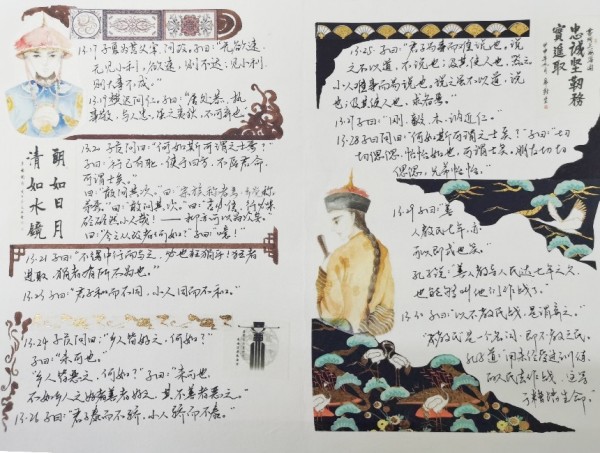 13.17 子夏为莒父宰,问政。子曰:"无欲速,
无见小利。欲速,则不达;见小利,
则大事不成。"
13.19 樊迟问仁。子曰:"居处恭,执
事敬,与人忠。虽之夷狄,不可弃也。"
13.20 子贡问曰:"何如斯可谓之士矣?"
子曰:"行己有耻,使于四方,不辱君命,
可谓士矣。"
曰:"敢问其次。"曰:"宗族称孝焉,乡党称
弟焉。"曰:"敢问其次。"曰:"言必信,行必果,
硁硁然小人哉!——抑亦可以为次矣。"
曰:"今之从政者何如?"子曰:"噫!
13.21 子曰:"不得中行而与之,必也狂狷乎!狂者
进取,狷者有所不为也。"
13.23 子曰:"君子和而不同,小人同而不和。"
13.24 子贡问曰:"乡人皆好之,何如?"
子曰:"未可也。"
"乡人皆恶之,何如?"子曰:"未可也,
不如乡人之好者善者好之,其不善者恶之。"
13.26 子曰:"君子泰而不骄,小人骄而不泰。"
朝如日月
清如水镜
13.25 子曰:"君子易事而难说也。说
之不以道,不说也;及其使人也,器之。
小人难事而易说也。说之虽不以道,说
也;及其使人也,求备焉。"
13.27 子曰:"刚、毅、木、讷近仁。"
13.28 子路问曰:"何如斯可谓之士矣?"子曰:"切
切偲偲,怡怡如也,可谓士矣。朋友切切
偲偲,兄弟怡怡。"
13.29 子曰:"善
人教民七年,亦
可以即戎矣。"
孔子说:"善人教导人民达七年之久,
也能够叫他们作战了。"
13.30 子曰:"以不教民战,是谓弃之。"
"不教民"是一个名词,即"不教之民"
孔子道:"用未经受过训练
的人民去作战,这等
于糟蹋生命。"
忠诚坚韧务
实进取